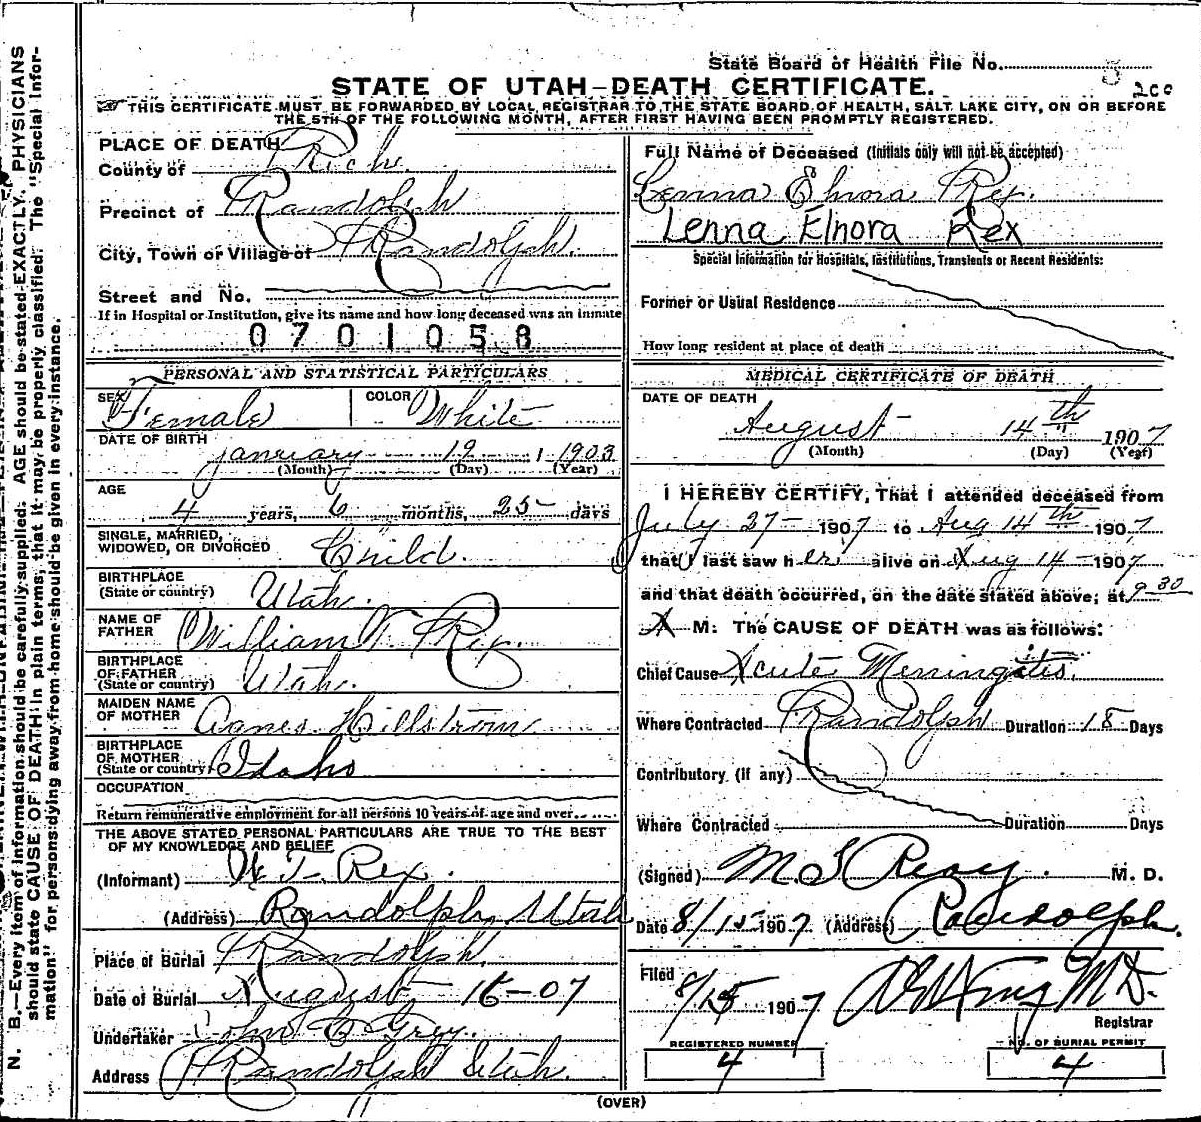 State Board of Health File No.
200
STATE OF UTAH—DEATH CERTIFICATE.
THIS CERTIFICATE MUST BE FORWARDED BY LOCAL REGISTRAR TO THE STATE BOARD OF HEALTH, SALT LAKE CITY, ON OR BEFORE
THE 5TH OF THE FOLLOWING MONTH, AFTER FIRST HAVING BEEN PROMPTLY REGISTERED.
PLACE OF DEATH
County of Rich.
Precinct of Randolph
City, Town or Village of Randolph.
Street and No.
If in Hospital or Institution, give its name and how long deceased was an inmate
0701058
PERSONAL AND STATISTICAL PARTICULARS
SEX Female COLOR White
DATE OF BIRTH
January 19 1903
(Month) (Day) (Year)
AGE
4 years, 6 months, 25 days
SINGLE, MARRIED,
WIDOWED, OR DIVORCED Child.
BIRTHPLACE
(State or country) Utah.
NAME OF
FATHER William T. Rex.
BIRTHPLACE
OF FATHER
(State or country) Utah.
MAIDEN NAME
OF MOTHER Agnes Hillstrom
BIRTHPLACE
OF MOTHER
(State or country) Idaho
OCCUPATION
Return remunerative employment for all persons 10 years of age and over.
THE ABOVE STATED PERSONAL PARTICULARS ARE TRUE TO THE BEST
OF MY KNOWLEDGE AND BELIEF
(Informant) W. T. Rex.
(Address) Randolph, Utah
Place of Burial Randolph.
Date of Burial August 16-07
Undertaker John C Grey.
Address Randolph Utah.
Full Name of Deceased (Initials only will not be accepted)
Lenna Elnora Rex.
Lenna Elnora Rex
Special Information for Hospitals, Institutions, Transients or Recent Residents:
Former or Usual Residence
How long resident at place of death
MEDICAL CERTIFICATE OF DEATH
DATE OF DEATH
August 14th 1907
(Month) (Day) (Year)
I HEREBY CERTIFY, That I attended deceased from
July 27- 1907 to Aug 14th 1907
that I last saw her alive on Aug 14- 1907
and that death occurred, on the date stated above, at 9 30
A M. The CAUSE OF DEATH was as follows:
Chief Cause Acute Meningitis.
Where Contracted Randolph Duration 18 Days
Contributory (if any)
Where Contracted Duration Days
(Signed) M. D.
Date 8/15 1907 (Address) Randolph.
Filed 8/15 1907 M.D.
Registrar
REGISTERED NUMBER
4
NO. OF BURIAL PERMIT
4
(OVER)
N. B.—Every item of information should be carefully supplied. AGE should be stated EXACTLY. PHYSICIANS
should state CAUSE OF DEATH in plain terms, that it may be properly classified. The "Special Infor-
mation" for persons dying away from home should be given in every instance.